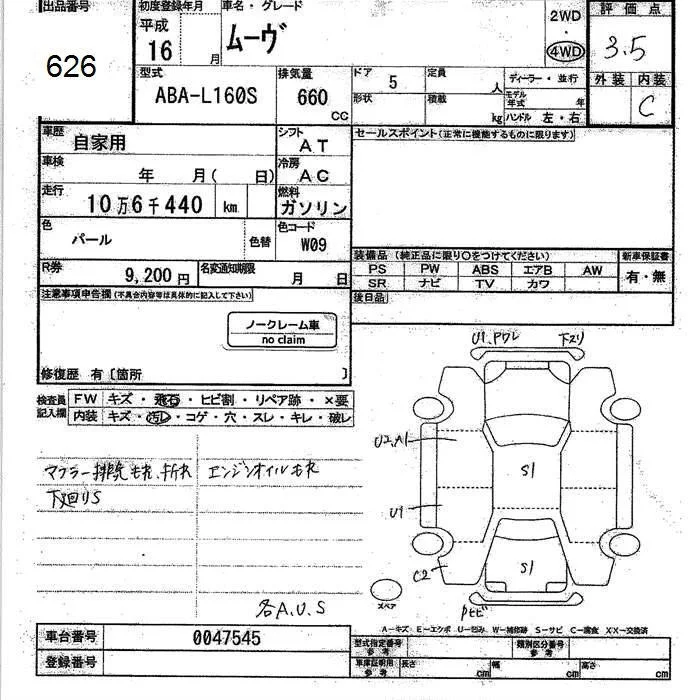 出品番号 初度登録年月 車名・グレード 評価点
626 平成 16 月 ムーヴ 2WD ・ 4WD 3.5
型式 ABA-L160S 排気量 660 CC ドア 5 定員 人 ディーラー・並行 外装 内装
形状 積載 kg モデル年式 年 ハンドル 左・右 C
車歴 自家用 シフト AT セールスポイント(正常に機能するものに限ります)
車検 年 月( 日) 冷房 AC
走行 10万6千440 km 燃料 ガソリン
色 パール 色替 色コード W09
装備品 (純正品に限り○をつけてください) 新車保証書
PS PW ABS エアB AW 有・無
SR ナビ TV カワ
R券 9,200円 名変通知期限 月 日
後日品
注意事項申告欄(不具合内容等は具体的に記入して下さい)
ノークレーム車
no claim
修復歴 有〔箇所 〕
U1,Pワレ 下スリ
検査員記入欄 FW キズ・飛石・ヒビ割・リペア跡・×要
内装 キズ・汚レ・コゲ・穴・スレ・キレ・破レ
U2,A1
S1
マフラー排気もれ、折れ エンジンオイルもれ
下廻りS
U1
S1
C2
スペア
各A.U.S
Pヒビ
A−キズ E−エクボ U−凹み W−補修跡 S−サビ C−腐食 XX−交換済
車台番号 0047545 型式指定番号 参考 類別区分番号 参考
登録番号 車庫証明用 参考 長さ cm 幅 cm 高さ cm